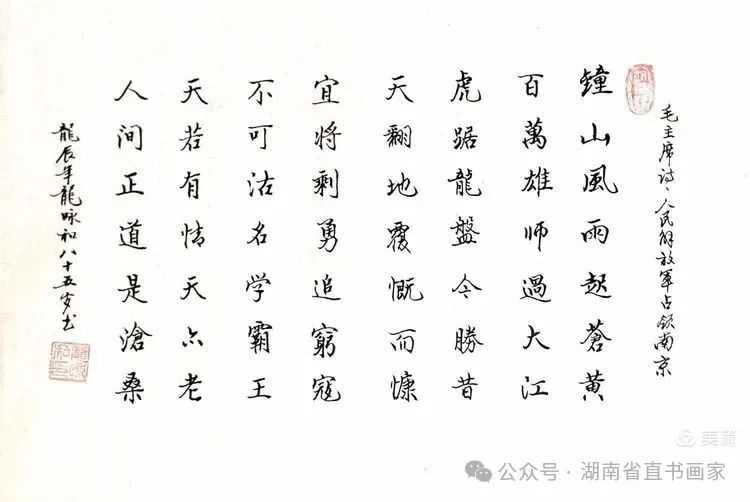 毛主席诗、人民解放军占领南京
鐘山風雨起蒼黄
百萬雄师過大江
虎踞龍盤今勝昔
天翻地覆慨而慷
宜将剩勇追窮寇
不可沽名学霸王
天若有情天亦老
人间正道是滄桑
龍辰年龍咏和八十五岁书
美篇
公众号·湖南省直书画家